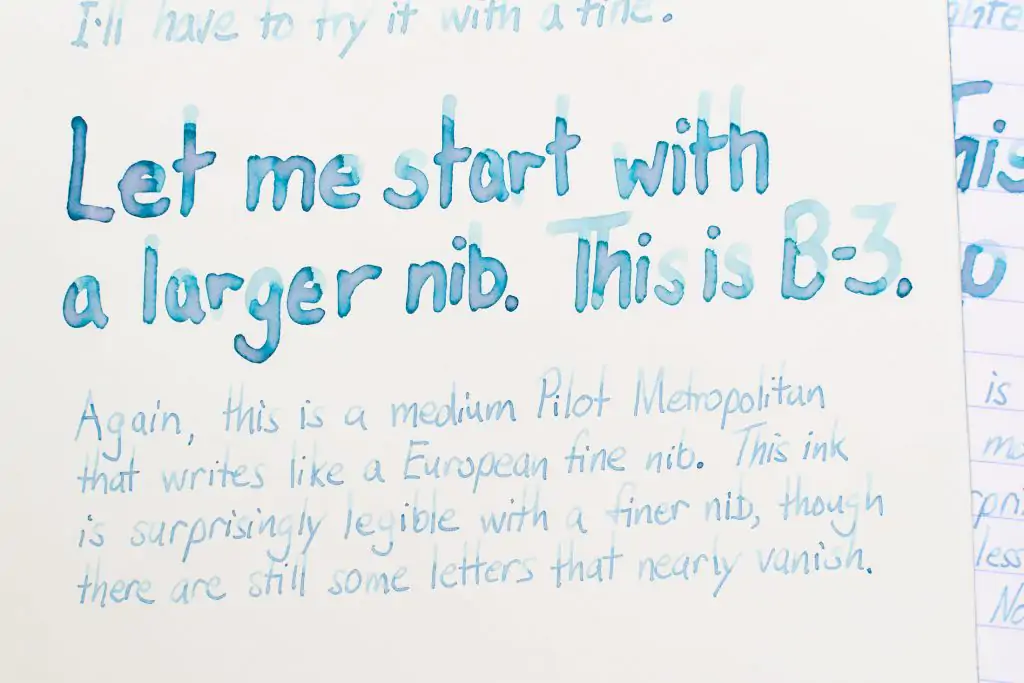 I'll have to try it with a fine.
Let me start with
a larger nib. This is B-3.
Again, this is a medium Pilot Metropolitan
that writes like a European fine nib. This ink
is surprisingly legible with a finer nib, though
there are still some letters that nearly vanish.
is
less